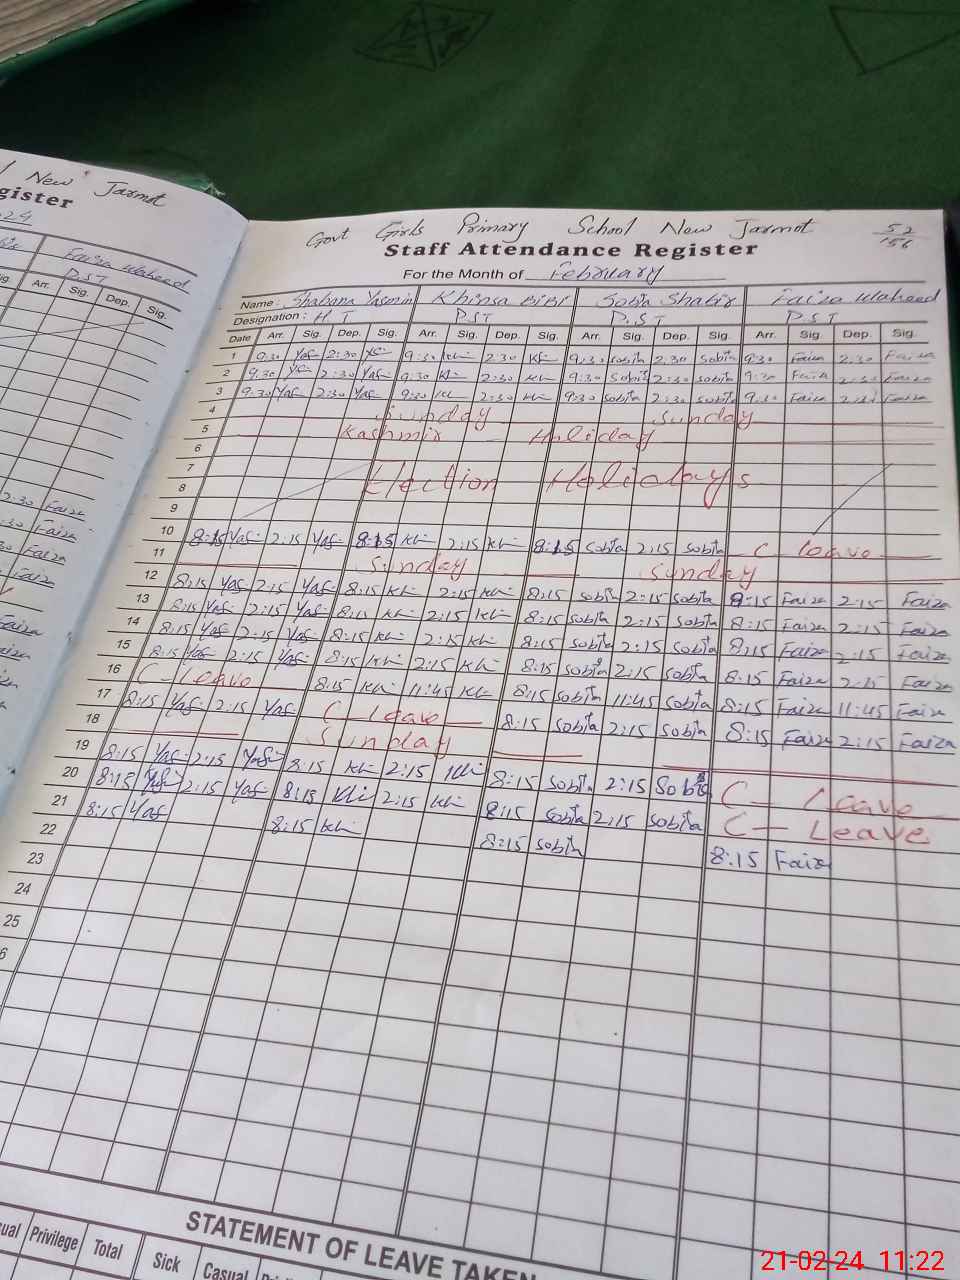 New Jarmot
gister
Faiza Waheed
P.S.T
Arr. Sig. Dep. Sig.
2:30 Faiza
:30 Faiza
Faiza
Faiza
Govt Girls Primary School New Jarmot 52/156
Staff Attendance Register
For the Month of February
Name: Shabana Yasmin Khinsa BiBi Sobia Shabir Faiza Waheed
Designation: H T P.S.T P.S.T P.S.T
Date Arr. Sig. Dep. Sig. Arr. Sig. Dep. Sig. Arr. Sig. Dep. Sig. Arr. Sig. Dep. Sig.
1 9:30 Yas 2:30 Yas 9:30 Kh 2:30 Kh 9:30 Sobia 2:30 Sobia 9:30 Faiza 2:30 Faiza
2 9:30 Yas 2:30 Yas 9:30 Kh 2:30 Kh 9:30 Sobia 2:30 Sobia 9:30 Faiza 2:30 Faiza
3 9:30 Yas 2:30 Yas 9:30 Kh 2:30 Kh 9:30 Sobia 2:30 Sobia 9:30 Faiza 2:30 Faiza
4 Sunday Sunday
5 Kashmir Holiday
6
7 Election Holidays
8
9
10 8:15 Yas 2:15 Yas 8:15 Kh 2:15 Kh 8:15 Sobia 2:15 Sobia C - Leave
11 Sunday Sunday
12 8:15 Yas 2:15 Yas 8:15 Kh 2:15 Kh 8:15 Sobia 2:15 Sobia 8:15 Faiza 2:15 Faiza
13 8:15 Yas 2:15 Yas 8:15 Kh 2:15 Kh 8:15 Sobia 2:15 Sobia 8:15 Faiza 2:15 Faiza
14 8:15 Yas 2:15 Yas 8:15 Kh 2:15 Kh 8:15 Sobia 2:15 Sobia 8:15 Faiza 2:15 Faiza
15 8:15 Yas 2:15 Yas 8:15 Kh 2:15 Kh 8:15 Sobia 2:15 Sobia 8:15 Faiza 2:15 Faiza
16 C - Leave 8:15 Kh 11:45 Kh 8:15 Sobia 11:45 Sobia 8:15 Faiza 11:45 Faiza
17 8:15 Yas 2:15 Yas C - Leave 8:15 Sobia 2:15 Sobia 8:15 Faiza 2:15 Faiza
18 Sunday
19 8:15 Yas 2:15 Yas 8:15 Kh 2:15 Kh 8:15 Sobia 2:15 Sobia C - Leave
20 8:15 Yas 2:15 Yas 8:15 Kh 2:15 Kh 8:15 Sobia 2:15 Sobia C - Leave
21 8:15 Yas 8:15 Kh 8:15 Sobia 8:15 Faiza
22
23
24
25
6
STATEMENT OF LEAVE TAKEN
ual Privilege Total Sick Casual
21-02-24 11:22